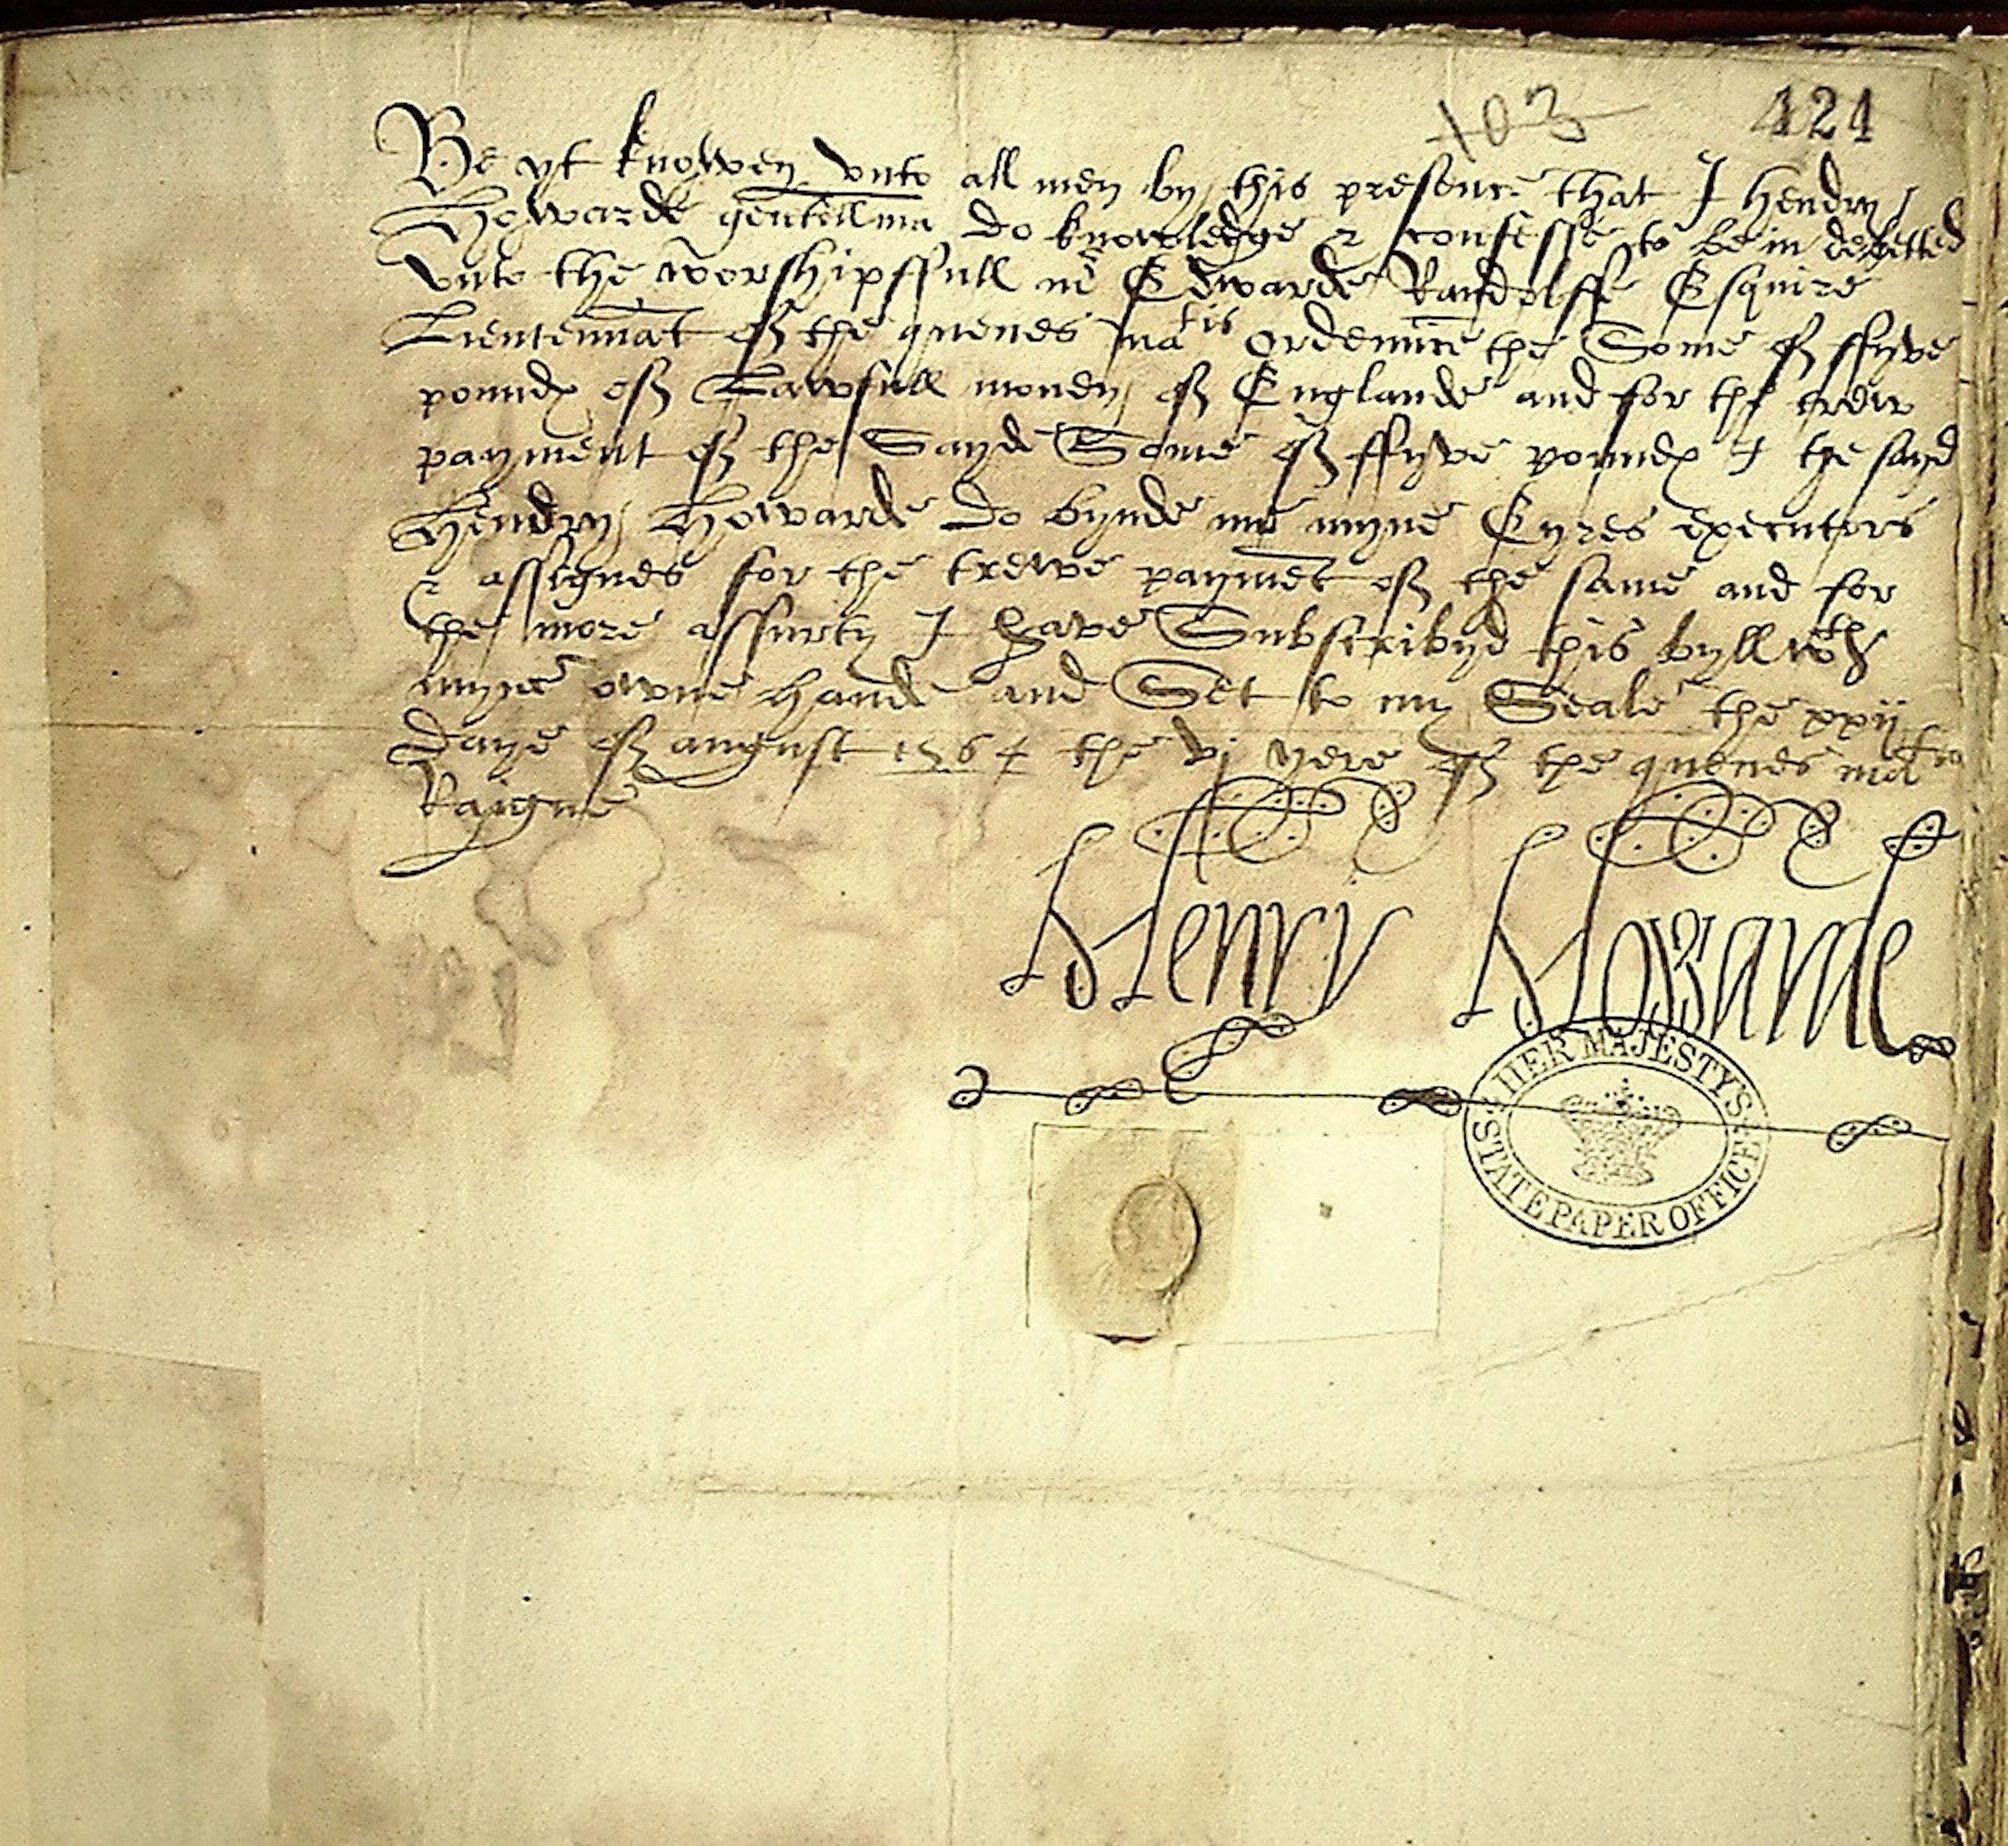 103 424
Be yt knowen vnto all men by this presence that I hendry
Howarde gentellma do knowledge & confesse to be in debetted
vnto the worshipffull mr Edwarde Randolffe Esquire
Lieutennat off the quenes matis ordennce the Some off ffyve
poundes off Lawfull money off Englande and for the trew
payment off the Sayde Some off ffyve poundes I the sayd
Hendry Howarde do bynde me myne Eyres executors
& assignes for the trewe payment off the same and for
the more assurty I have Subscribyd this byll wth
myne owne hande and Set to my Seale the xxij
Daye off august 1564 the vj yere off the quenes matis
Raigne
Henry Howarde
HER MAJESTY'S
STATE PAPER OFFICE